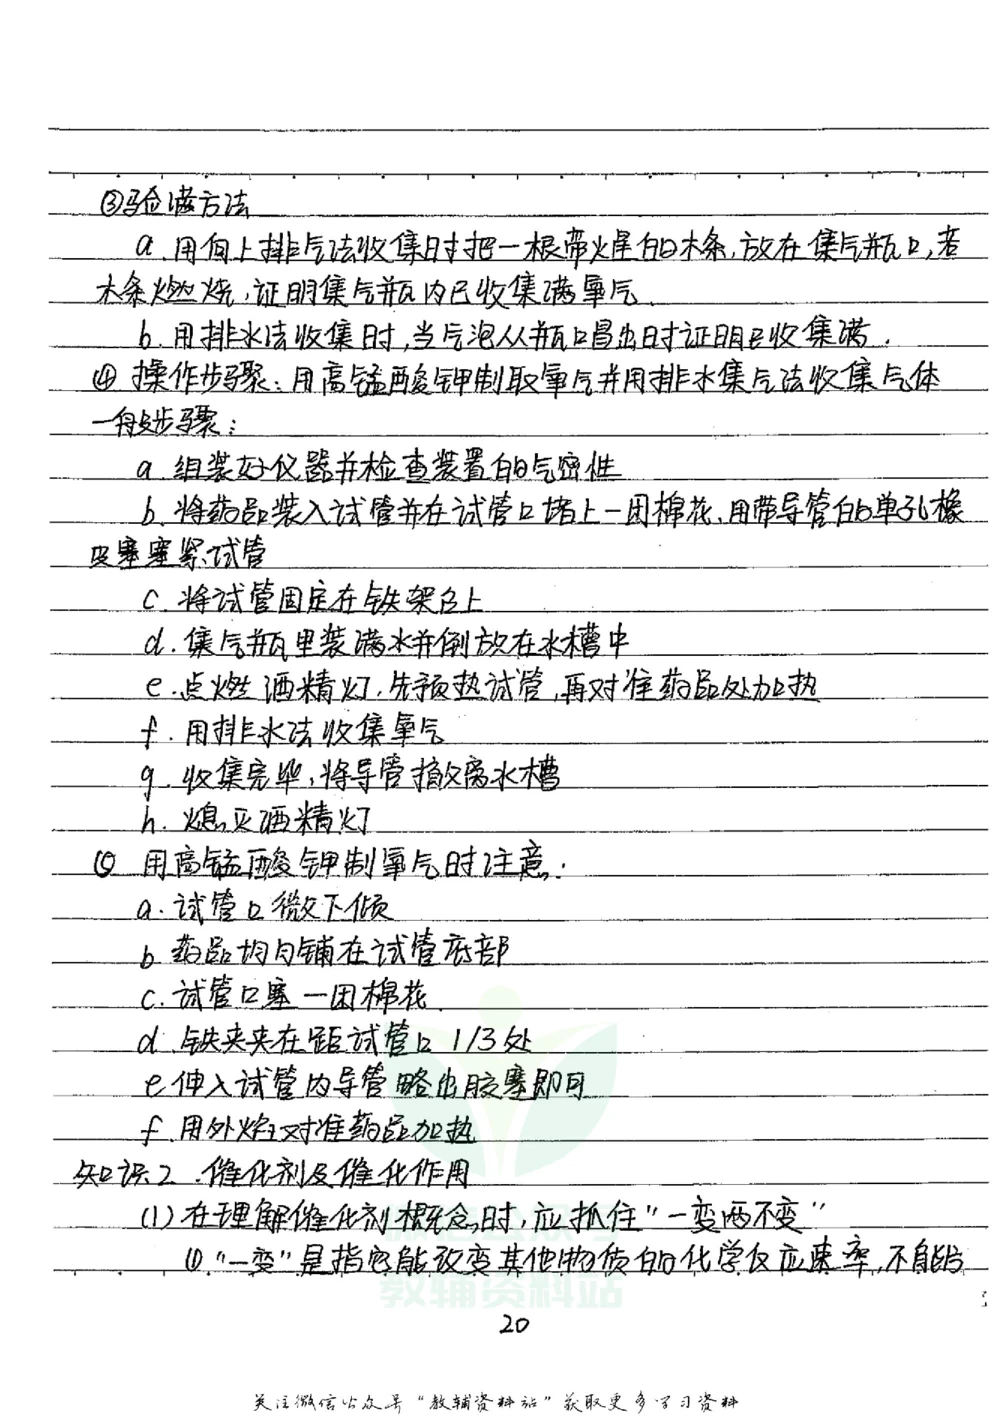 ③验满方法
a.用向上排气法收集时把一根带火星的木条,放在集气瓶口,若
木条燃烧,证明集气瓶内已收集满氧气.
b.用排水法收集时,当气泡从瓶口冒出时证明已收集满.
④操作步骤:用高锰酸钾制取氧气并用排水集气法收集气体
一般步骤:
a.组装好仪器并检查装置的气密性
b.将药品装入试管并在试管口堵上一团棉花,用带导管的单孔橡
皮塞塞紧试管
c.将试管固定在铁架台上
d.集气瓶里装满水并倒放在水槽中
e.点燃酒精灯.先预热试管,再对准药品处加热
f.用排水法收集氧气
g.收集完毕,将导管撤离水槽
h.熄灭酒精灯
⑤用高锰酸钾制氧气时注意:
a.试管口微下倾
b.药品均匀铺在试管底部
c.试管口塞一团棉花
d.铁夹夹在距试管口1/3处
e.伸入试管内导管略出胶塞即可
f.用外焰对准药品加热
知识2.催化剂及催化作用
(1)在理解催化剂概念时,应抓住"一变两不变"
①."一变"是指它能改变其他物质的化学反应速率,不能与
微信公众号
教辅资料站
20
关注微信公众号"教辅资料站"获取更多学习资料